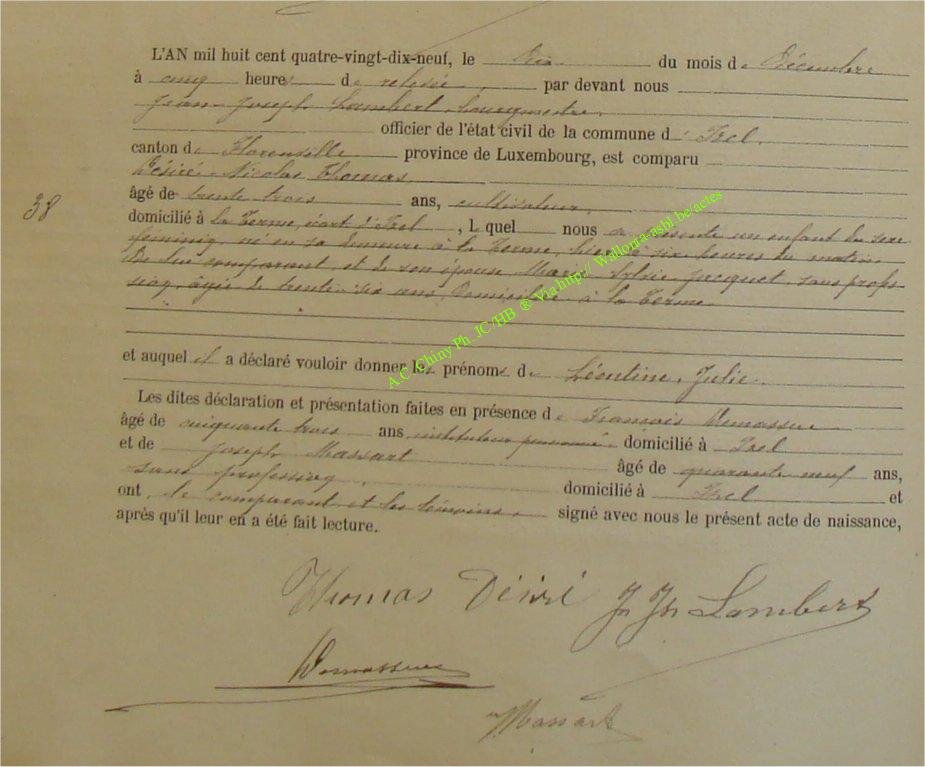 L'AN mil huit cent quatre-vingt-dix-neuf, le dix du mois de Décembre
à cinq heures de relevée, par devant nous
Jean Joseph Lambert, bourgmestre,
officier de l'état civil de la commune d'Izel,
canton de Florenville province de Luxembourg, est comparu
Désiré Nicolas Thomas,
38
âgé de trente trois ans, cultivateur,
domicilié à la Terme, écart d'Izel, L quel nous a présenté un enfant du sexe
féminin, né en sa demeure à la Terme, à six heures du matin
de lui comparant et de son épouse Marie Sylvie Jacquet, sans profes
sion, âgée de trente-six ans, domiciliée à la Terme
et auquel il a déclaré vouloir donner les prénoms de Léontine, Julie.
Les dites déclaration et présentation faites en présence de François Demasseur
âgé de cinquante trois ans instituteur pensionné domicilié à Izel
et de Joseph Massart âgé de quarante neuf ans,
sans profession, domicilié à Izel et
ont, le comparant et les témoins, signé avec nous le présent acte de naissance,
après qu'il leur en a été fait lecture.
Thomas Désiré J Jh Lambert
Demasseur
Massart
A.C. Chiny Ph. JC/HB ® Via http:// Wallonia-asbl.be/actes